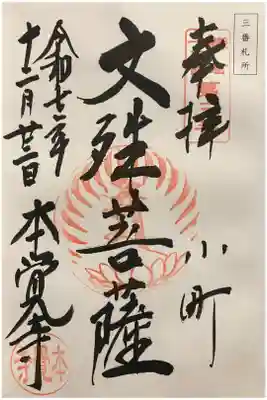 三番札所
奉拝
小町
文殊菩薩
令和七年
十二月廿一日
本覚寺